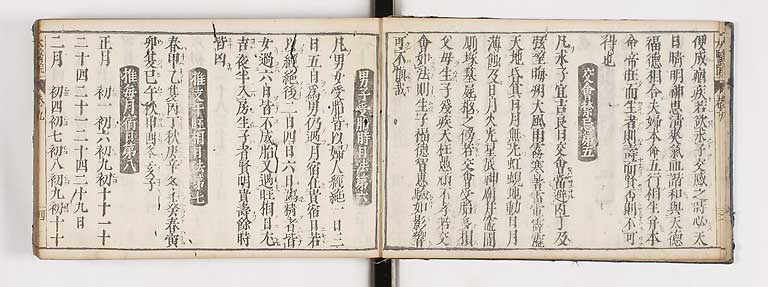 便成痼疾若欲求子交感之時必天
日晴明神思清爽氣血諧和與天德
福德相合夫婦本命五行相生并本
命帝旺而生者則壽而賢否則不可
得也
交會禁忌第五
凡求子宜吉良日交會當避丙丁及
弦望晦朔大風雨霧寒暑雷電霹靂
天地昏冥日月無光虹蜺地動日月
薄蝕及日月火光星辰神廟井竈圊
厠塚墓屍柩之傍若交會受胎多損
父母生子殘疾夭枉愚頑不孝若交
會如法則生子福德智慧驗如影響
可不愼哉
男子受胎時日法第六
凡男女受胎皆以婦人經絶一日三
日五日爲男仍遇月宿在貴宿日若
以經絶後二日四日六日瀉精者皆
女過六日皆不成胎又遇旺相日尤
吉夜半入房生子者賢明貴壽餘時
皆凶
推支干旺相日法第七
春甲乙夏丙丁秋庚辛冬壬癸春寅
卯夏巳午秋申酉冬亥子
推每月宿日第八
正月 初一初六初九初十十一十
二十四二十一二十四二十九日
二月 初四初七初八初九初十十